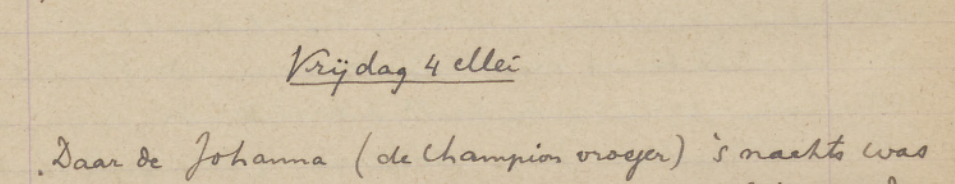 Vrijdag 4 Mei
Daar de Johanna (de Champion vroeger) 's nachts was